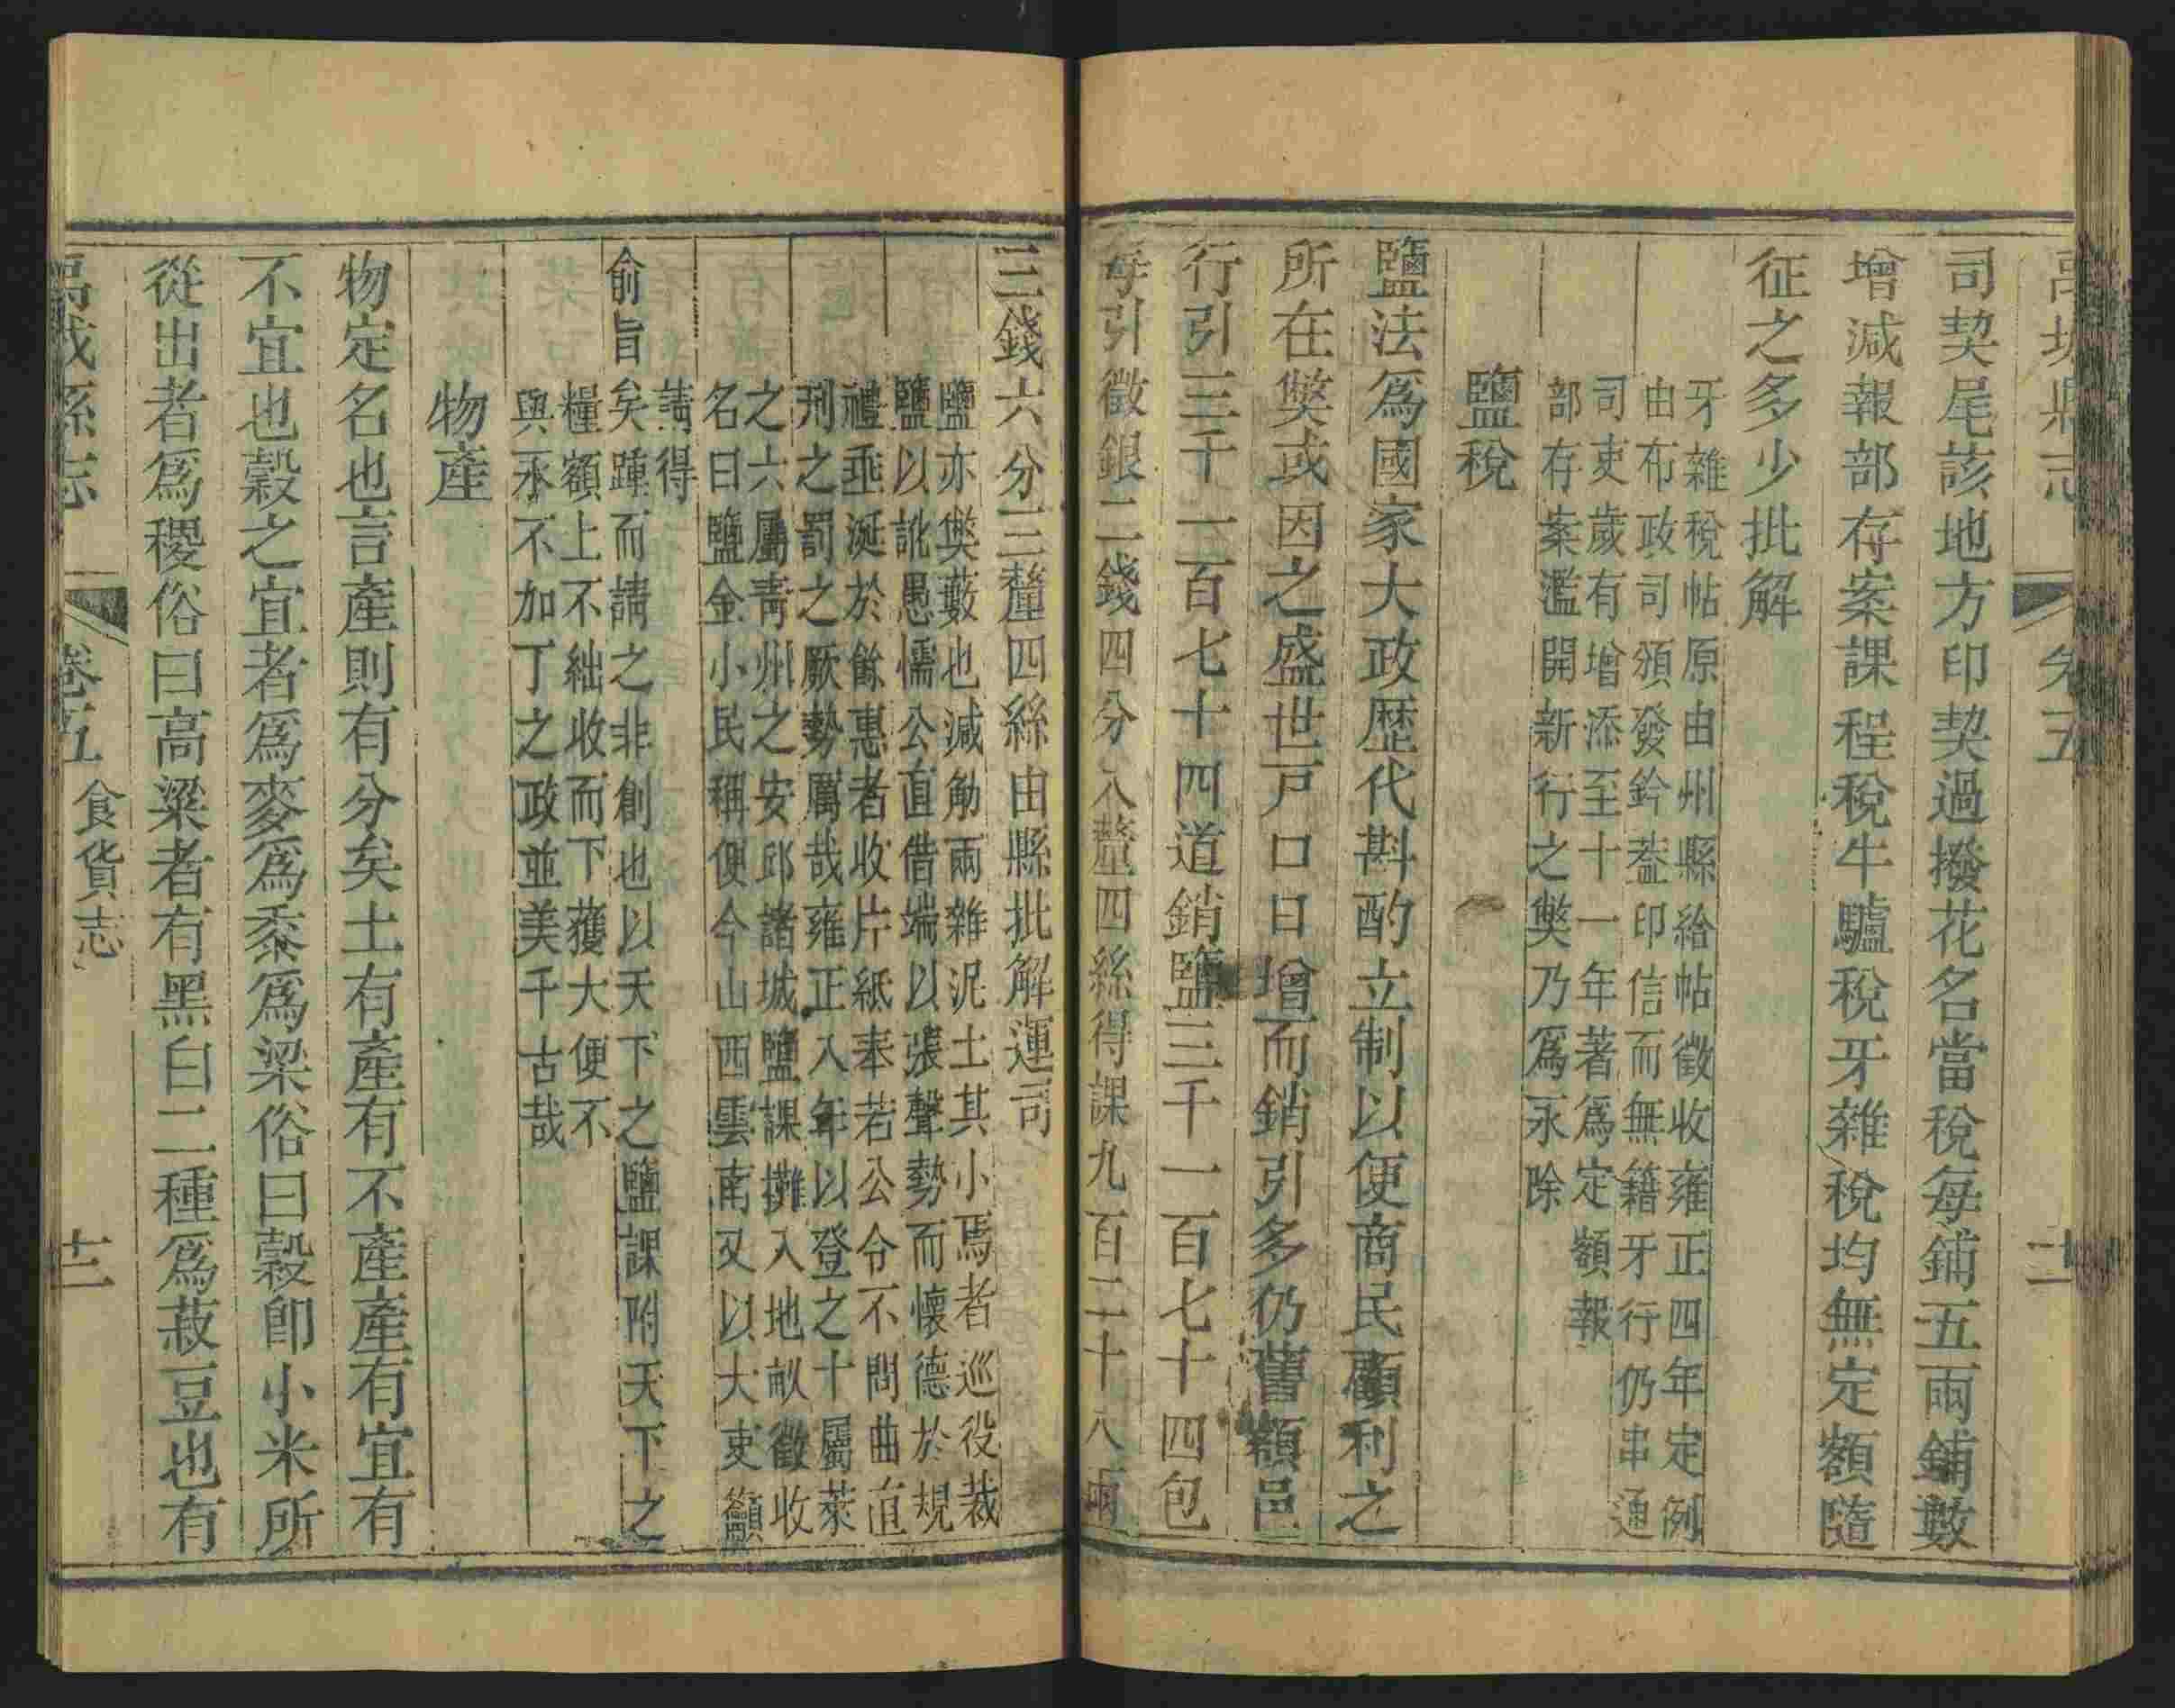 禹城縣志
卷五
十二
司契尾該地方印契過撥花名當稅每鋪五兩鋪數
增減報部存案課程稅牛驢稅牙雜稅均無定額隨
征之多少批解
牙雜稅帖原由州縣給帖徵收雍正四年定例
由布政司頒發鈐葢印信而無籍牙行仍串通
司吏歲有增添至十一年著爲定額報
部存案濫開新行之獘乃爲永除
鹽稅
鹽法爲國家大政歴代斟酌立制以便商民顧利之
所在獘或因之盛世戸口日增而銷引多仍舊額邑
行引三千一百七十四道銷鹽三千一百七十四包
每引徵銀二錢四分八釐四絲得課九百二十八兩
三錢六分三釐四絲由縣批解運司
鹽亦獘藪也減觔兩雜泥土其小焉者巡役裁
鹽以訛愚懦公直借端以張聲勢而懷德於規
禮乖涎於餘惠者收片紙奉若公令不問曲直
刑之罰之厥勢厲哉雍正八年以登之十屬萊
之六屬靑州之安邱諸城鹽課攤入地畝徵收
名曰鹽金小民稱便今山西雲南又以大吏籲
請得
俞旨矣踵而請之非創也以天下之鹽課附天下之
糧額上不絀收而下獲大便不
與永不加丁之政並美千古哉
物產
物定名也言產則有分矣土有產有不產產有宜有
不宜也穀之宜者爲麥爲黍爲梁俗曰穀卽小米所
從出者爲稷俗曰高粱者有黑白二種爲菽豆也有
禹城縣志
卷五
食貨志
十三